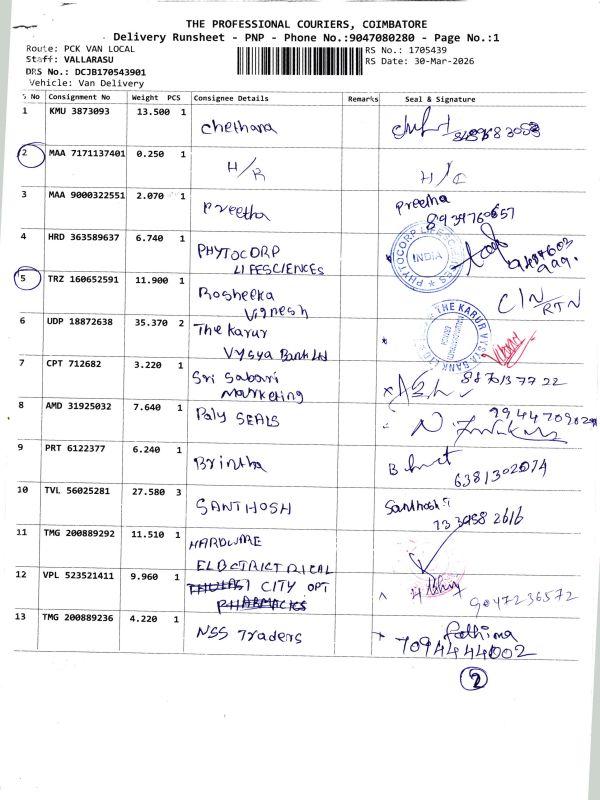 THE PROFESSIONAL COURIERS, COIMBATORE
Delivery Runsheet - PNP - Phone No.:9047080280 - Page No.:1
Route: PCK VAN LOCAL
RS No.: 1705439
Staff: VALLARASU
RS Date: 30-Mar-2026
DRS No.: DCJB170543901
Vehicle: Van Delivery
S No Consignment No Weight PCS Consignee Details Remarks Seal & Signature
1 KMU 3873093 13.500 1 Chethana
2 MAA 7171137401 0.250 1 H/R H/C
3 MAA 9000322551 2.070 1 Preetha Preetha
8939760657
4 HRD 363589637 6.740 1 PHYTOCORP
LIFESCIENCES
PHYTOCORP LIFESCIENCES
INDIA
5 TRZ 160652591 11.900 1 Rosheeka
Vignesh
C/N/RTN
6 UDP 18872638 35.370 2 The Karur
Vysya Bank Ltd
THE KARUR VYSYA BANK LTD
7 CPT 712682 3.220 1 Sri Sabari
Marketing
8870137722
8 AMD 31925032 7.640 1 Poly SEALS
9 PRT 6122377 6.240 1 Brintha
6381302074
10 TVL 56025281 27.580 3 SANTHOSH Santhosh
11 TMG 200889292 11.510 1 HARDWARE
ELECTRICTRICAL
12 VPL 523521411 9.960 1 THULASI CITY OPT
PHARMACIES
9047236572
13 TMG 200889236 4.220 1 NSS Traders Fathima
7094444002
2